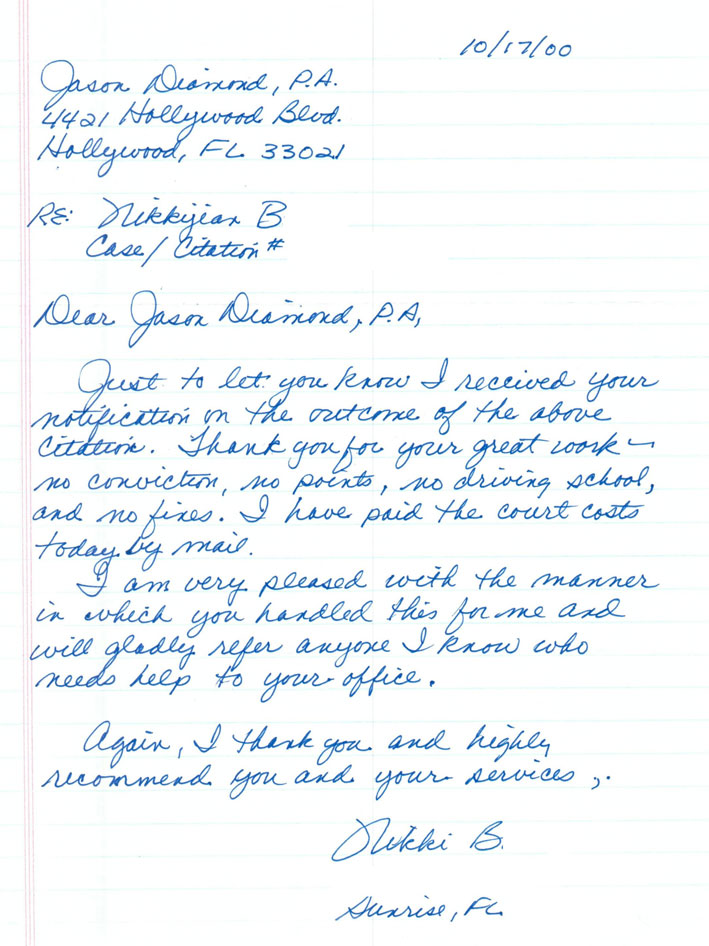 10/17/00
Jason Diamond, P.A.
4421 Hollywood Blvd.
Hollywood, FL 33021
RE: Nikkijean B
Case/Citation #
Dear Jason Diamond, P.A,
Just to let you know I received your
notification on the outcome of the above
citation. Thank you for your great work –
no conviction, no points, no driving school,
and no fines. I have paid the court costs
today by mail.
I am very pleased with the manner
in which you handled this for me and
will gladly refer anyone I know who
needs help to your office.
Again, I thank you and highly
recommend you and your services,.
Nikki B.
Sunrise, FL